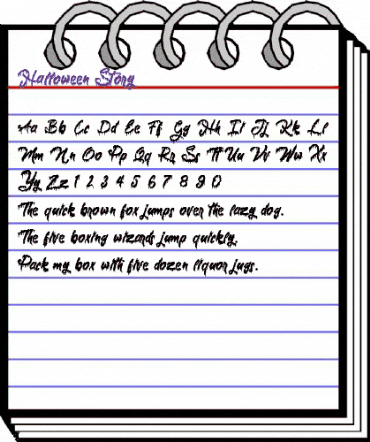 Halloween Story
Aa Bb Cc Dd Ee Ff Gg Hh Ii Jj Kk Ll
Mm Nn Oo Pp Qq Rr Ss Tt Uu Vv Ww Xx
Yy Zz 1 2 3 4 5 6 7 8 9 0
The quick brown fox jumps over the lazy dog.
The five boxing wizards jump quickly.
Pack my box with five dozen liquor jugs.